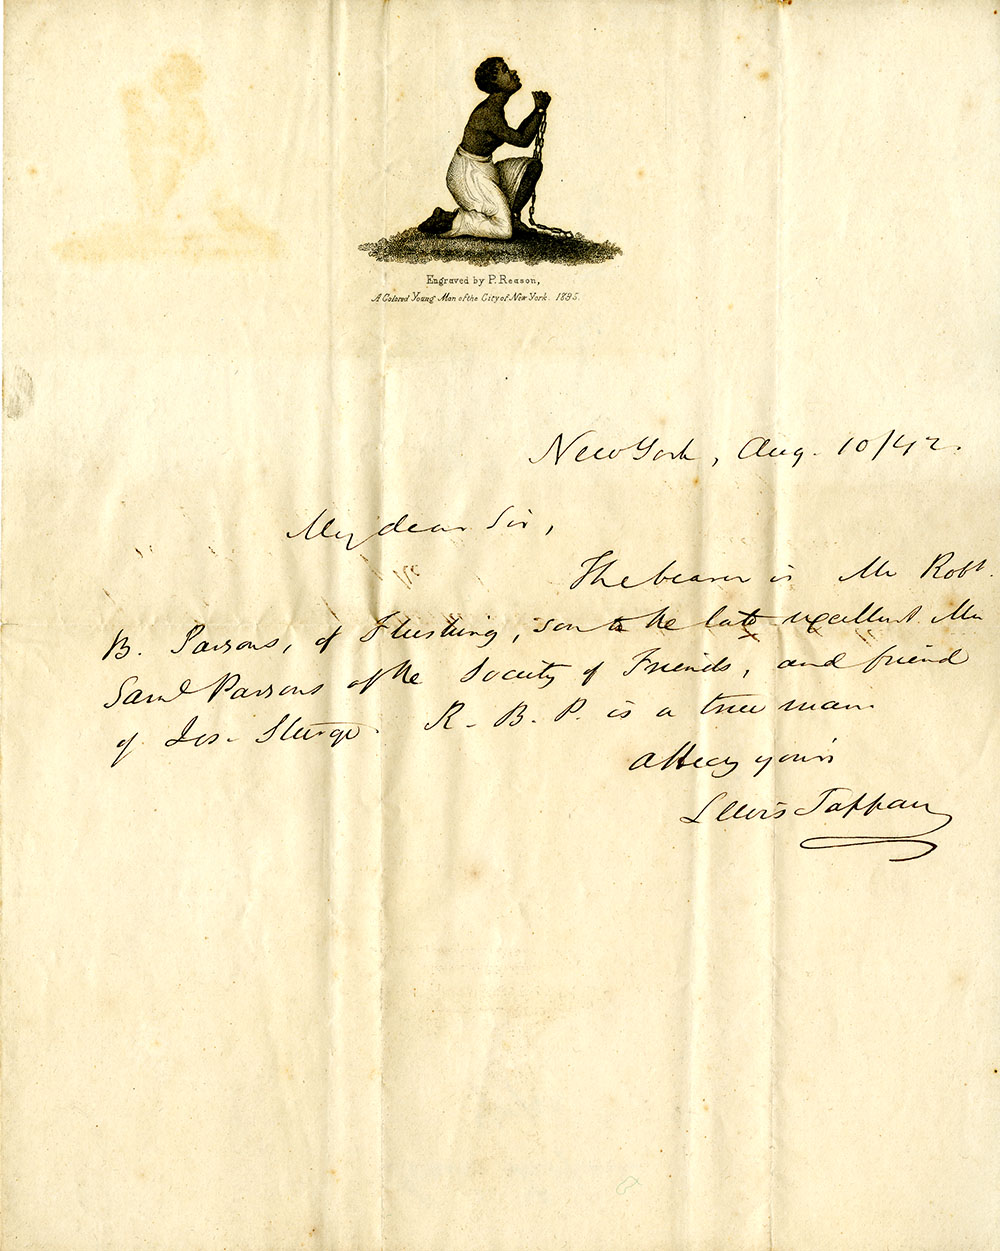 Engraved by P. Reason,
A Colored Young Man of the City of New York. 1835.
New York, Aug. 10/42.
My dear Sir,
The bearer is Mr Robt.
B. Parsons, of Flushing, son to the late excellent Mr
Saml Parsons of the Society of Friends, and friend
of Jos. Sturge. R. B. P. is a true man.
affecy yours
Lewis Tappan